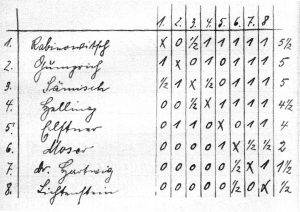 1. 2. 3. 4. 5. 6. 7. 8.
1. Rabinowitsch X 0 ½ 1 1 1 1 1 5½
2. Gumprich 1 X 0 1 0 1 1 1 5
3. Sämisch ½ 1 X ½ 0 1 1 1 5
4. Helling 0 0 ½ X 1 1 1 1 4½
5. Elstner 0 1 1 0 X 0 1 1 4
6. Moser 0 0 0 0 1 X ½ ½ 2
7. Dr. Hartwig 0 0 0 0 0 ½ X 1 1½
8. Lichtenstein 0 0 0 0 0 ½ 0 X ½